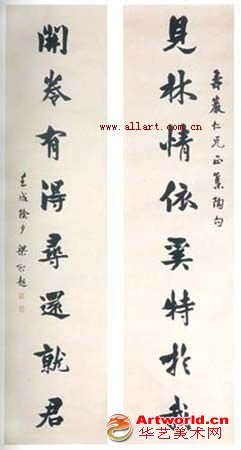 見林情依奚特於我
壽巖仁兄正 集陶句
開卷有得尋還就君
壬戌除夕 梁啟超
www.allart.com.cn
Artworld.cn
华艺美术网